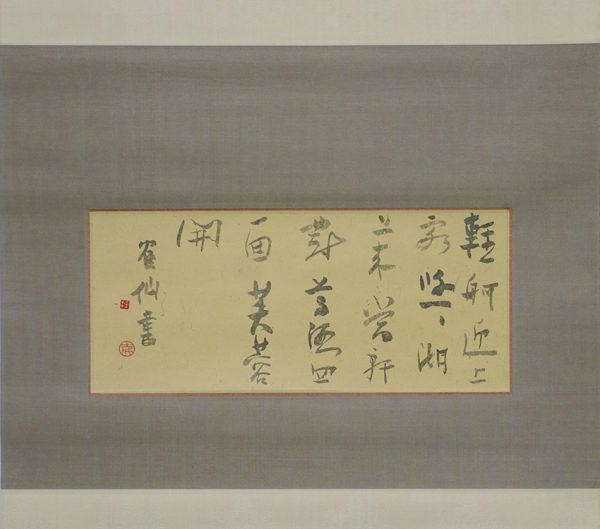 輕舸迎上
客悠々湖
上来當軒
對尊酒四
面芙蓉
開
仙書